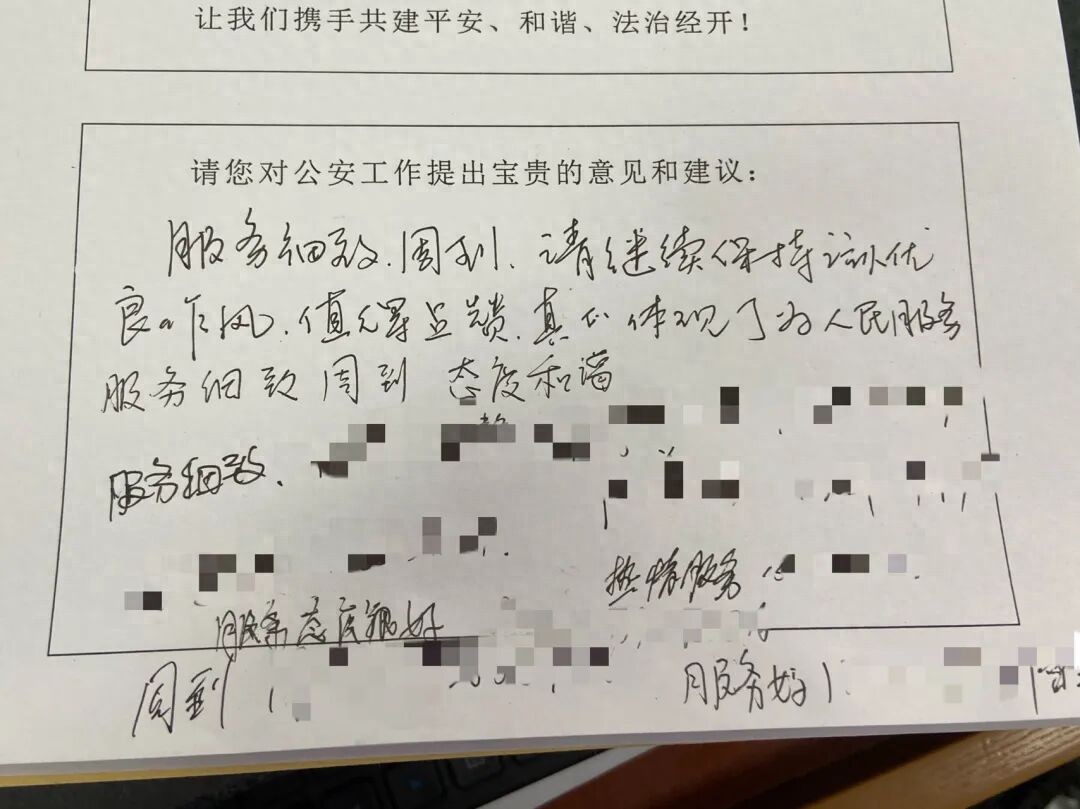 让我们携手共建平安、和谐、法治经开！
请您对公安工作提出宝贵的意见和建议：
服务细致.周到.请继续保持该优
良作风.值得点赞.真正体现了为人民服务
服务细致 周到 态度和谐
服务细致.
热情服务
服务态度很好
周到
服务好